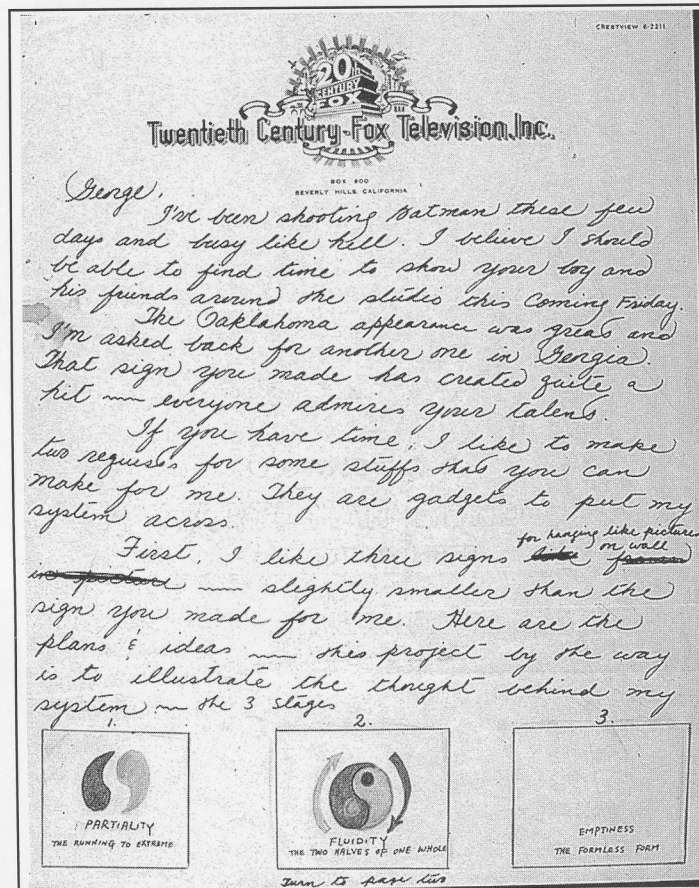 CRESTVIEW 6-2211
20th
CENTURY
FOX
Twentieth Century-Fox Television, Inc.
BOX 900
BEVERLY HILLS, CALIFORNIA
George,
I've been shooting Batman these few
days and busy like hell. I believe I should
be able to find time to show your boy and
his friends around the studio this coming Friday.
The Oaklahoma appearance was great and
I'm asked back for another one in Georgia.
That sign you made has created quite a
hit — everyone admires your talent.
If you have time, I like to make
two requests for some stuffs that you can
make for me. They are gadgets to put my
system across.
for hanging like pictures
First, I like three signs on wall
— slightly smaller than the
sign you made for me. Here are the
plans & ideas — this project by the way
is to illustrate the thought behind my
system — the 3 stages
1.
2.
3.
PARTIALITY
THE RUNNING TO EXTREME
FLUIDITY
THE TWO HALVES OF ONE WHOLE
EMPTINESS
THE FORMLESS FORM
Turn to page two